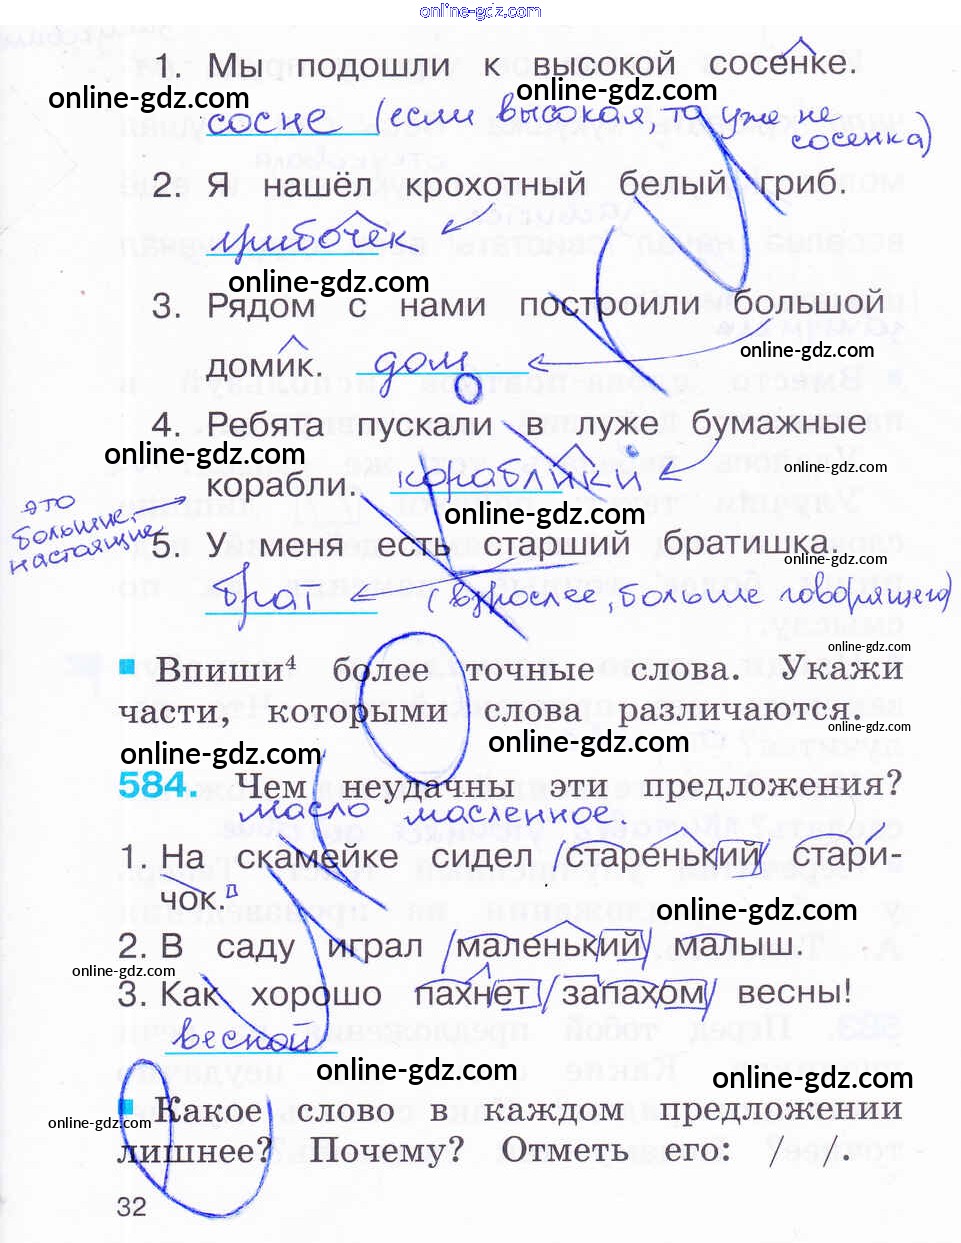 online-gdz.com
1. Мы подошли к высокой сосенке.
online-gdz.com online-gdz.com
сосне (если высокая, то уже не
сосенка)
2. Я нашёл крохотный белый гриб.
грибочек
online-gdz.com
3. Рядом с нами построили большой
online-gdz.com
домик. дом
4. Ребята пускали в луже бумажные
online-gdz.com online-gdz.com
корабли. кораблики
это
большие,
настоящие
online-gdz.com online-gdz.com
5. У меня есть старший братишка.
online-gdz.com
брат (взрослее, больше говорящего)
online-gdz.com
Впиши⁴ более точные слова. Укажи
части, которыми слова различаются.
online-gdz.com
online-gdz.com online-gdz.com
584. Чем неудачны эти предложения?
масло масленное
1. На скамейке сидел /старенький/ стари-
чок.
online-gdz.com
2. В саду играл /маленький/ малыш.
online-gdz.com
3. Как хорошо пахнет /запахом/ весны!
весной
online-gdz.com online-gdz.com
Какое слово в каждом предложении
online-gdz.com
лишнее? Почему? Отметь его: / /.
32